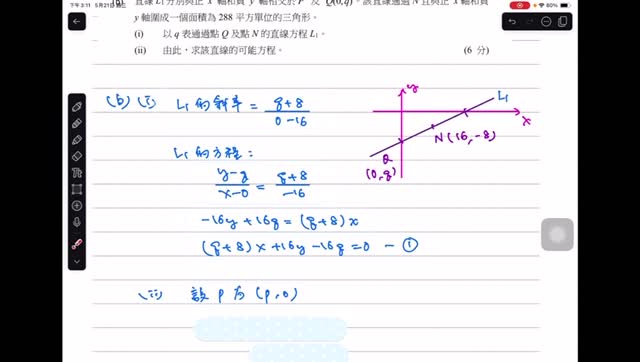 下午 3:11 5月21日 80%
直線 L₁ 分別與正 x 軸和負 y 軸相交於 P 及 Q(0,q)。該直線通過 N 且與正 x 軸和負
y 軸圍成一個面積為 288 平方單位的三角形。
(i) 以 q 表通過點 Q 及點 N 的直線方程 L₁。
(ii) 由此，求該直線的可能方程。 (6 分)
(b) (i) L₁ 的斜率 = (q+8)/(0-16)
L₁ 的方程：
(y-q)/(x-0) = (q+8)/(-16)
-16y + 16q = (q+8)x
(q+8)x + 16y - 16q = 0 — ①
(ii) 設 P 為 (p, 0)
y
L₁
x
N(16, -8)
Q
(0, q)